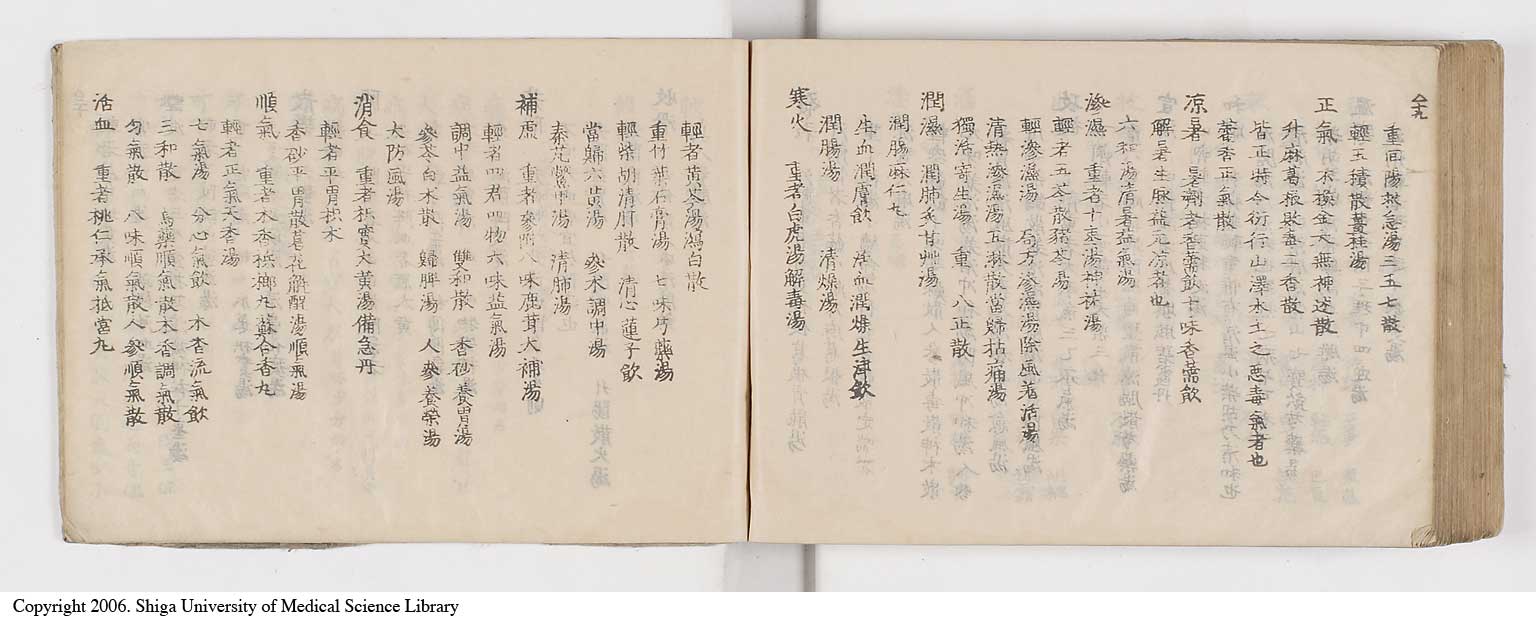 重回陽救急湯三五七散
輕五積散薑桂湯
正氣 不換金天無神述散
升麻葛根敗毒二香散
皆正時令衍行山澤水土之悪毒氣者也
藿香正氣散
凉暑 暑劑者香薷飲十味香薷飲
解暑生脉益元凉者也
六和湯清暑益氣湯
滲濕 重者十棗湯神祐湯
輕者五苓散豬苓湯
輕滲濕湯 局方滲濕湯除風羗活湯
清熱滲濕湯五淋散當歸拈痛湯
獨活寄生湯 重 八正散
潤濕 潤肺炙甘艸湯
潤腸麻仁九
生血潤膚飲 潤燥生津飲
潤腸湯 清燥湯
寒火 重者白虎湯解毒湯
輕者黄芩湯瀉白散
重竹葉石膏湯 七味芍藥湯
輕柴胡清肝散 清心蓮子飲
當歸六黄湯 參朮調中湯
秦芃 中湯 清肺湯
補虚 重者參附八味鹿茸大補湯
輕者四君四物六味益氣湯
調中益氣湯 雙和散 香砂養胃湯
參苓白朮散 歸脾湯 人參養榮湯
大防風湯
消食 重者枳實大黄湯備急丹
輕者平胃枳朮
香砂平胃散葛花解酲湯順氣湯
順氣 重者木香梹榔九蘇合香九
輕者正氣天香湯
七氣湯 分心氣飲 木香流氣飲
三和散 烏藥順氣散木香調氣散
匀氣散 八味順氣散人參順氣散
活血 重者桃仁承氣抵當九
Copyright 2006. Shiga University of Medical Science Library